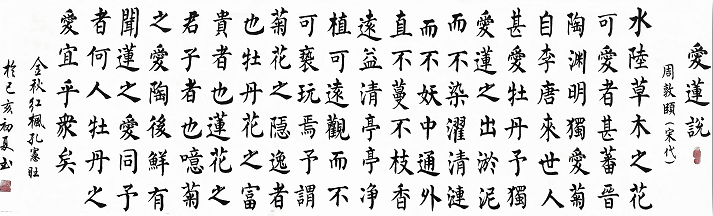 愛蓮說
周敦頤（宋代）
水陸草木之花
可愛者甚蕃晉
陶渊明獨愛菊
自李唐來世人
甚愛牡丹予獨
愛蓮之出淤泥
而不染濯清漣
而不妖中通外
直不蔓不枝香
遠益清亭亭净
植可遠觀而不
可褻玩焉予謂
菊花之隱逸者
也牡丹花之富
貴者也蓮花之
君子者也噫菊
之愛陶後鮮有
聞蓮之愛同予
者何人牡丹之
愛宜乎衆矣
金秋红楓孔憲旺
於己亥初夏书